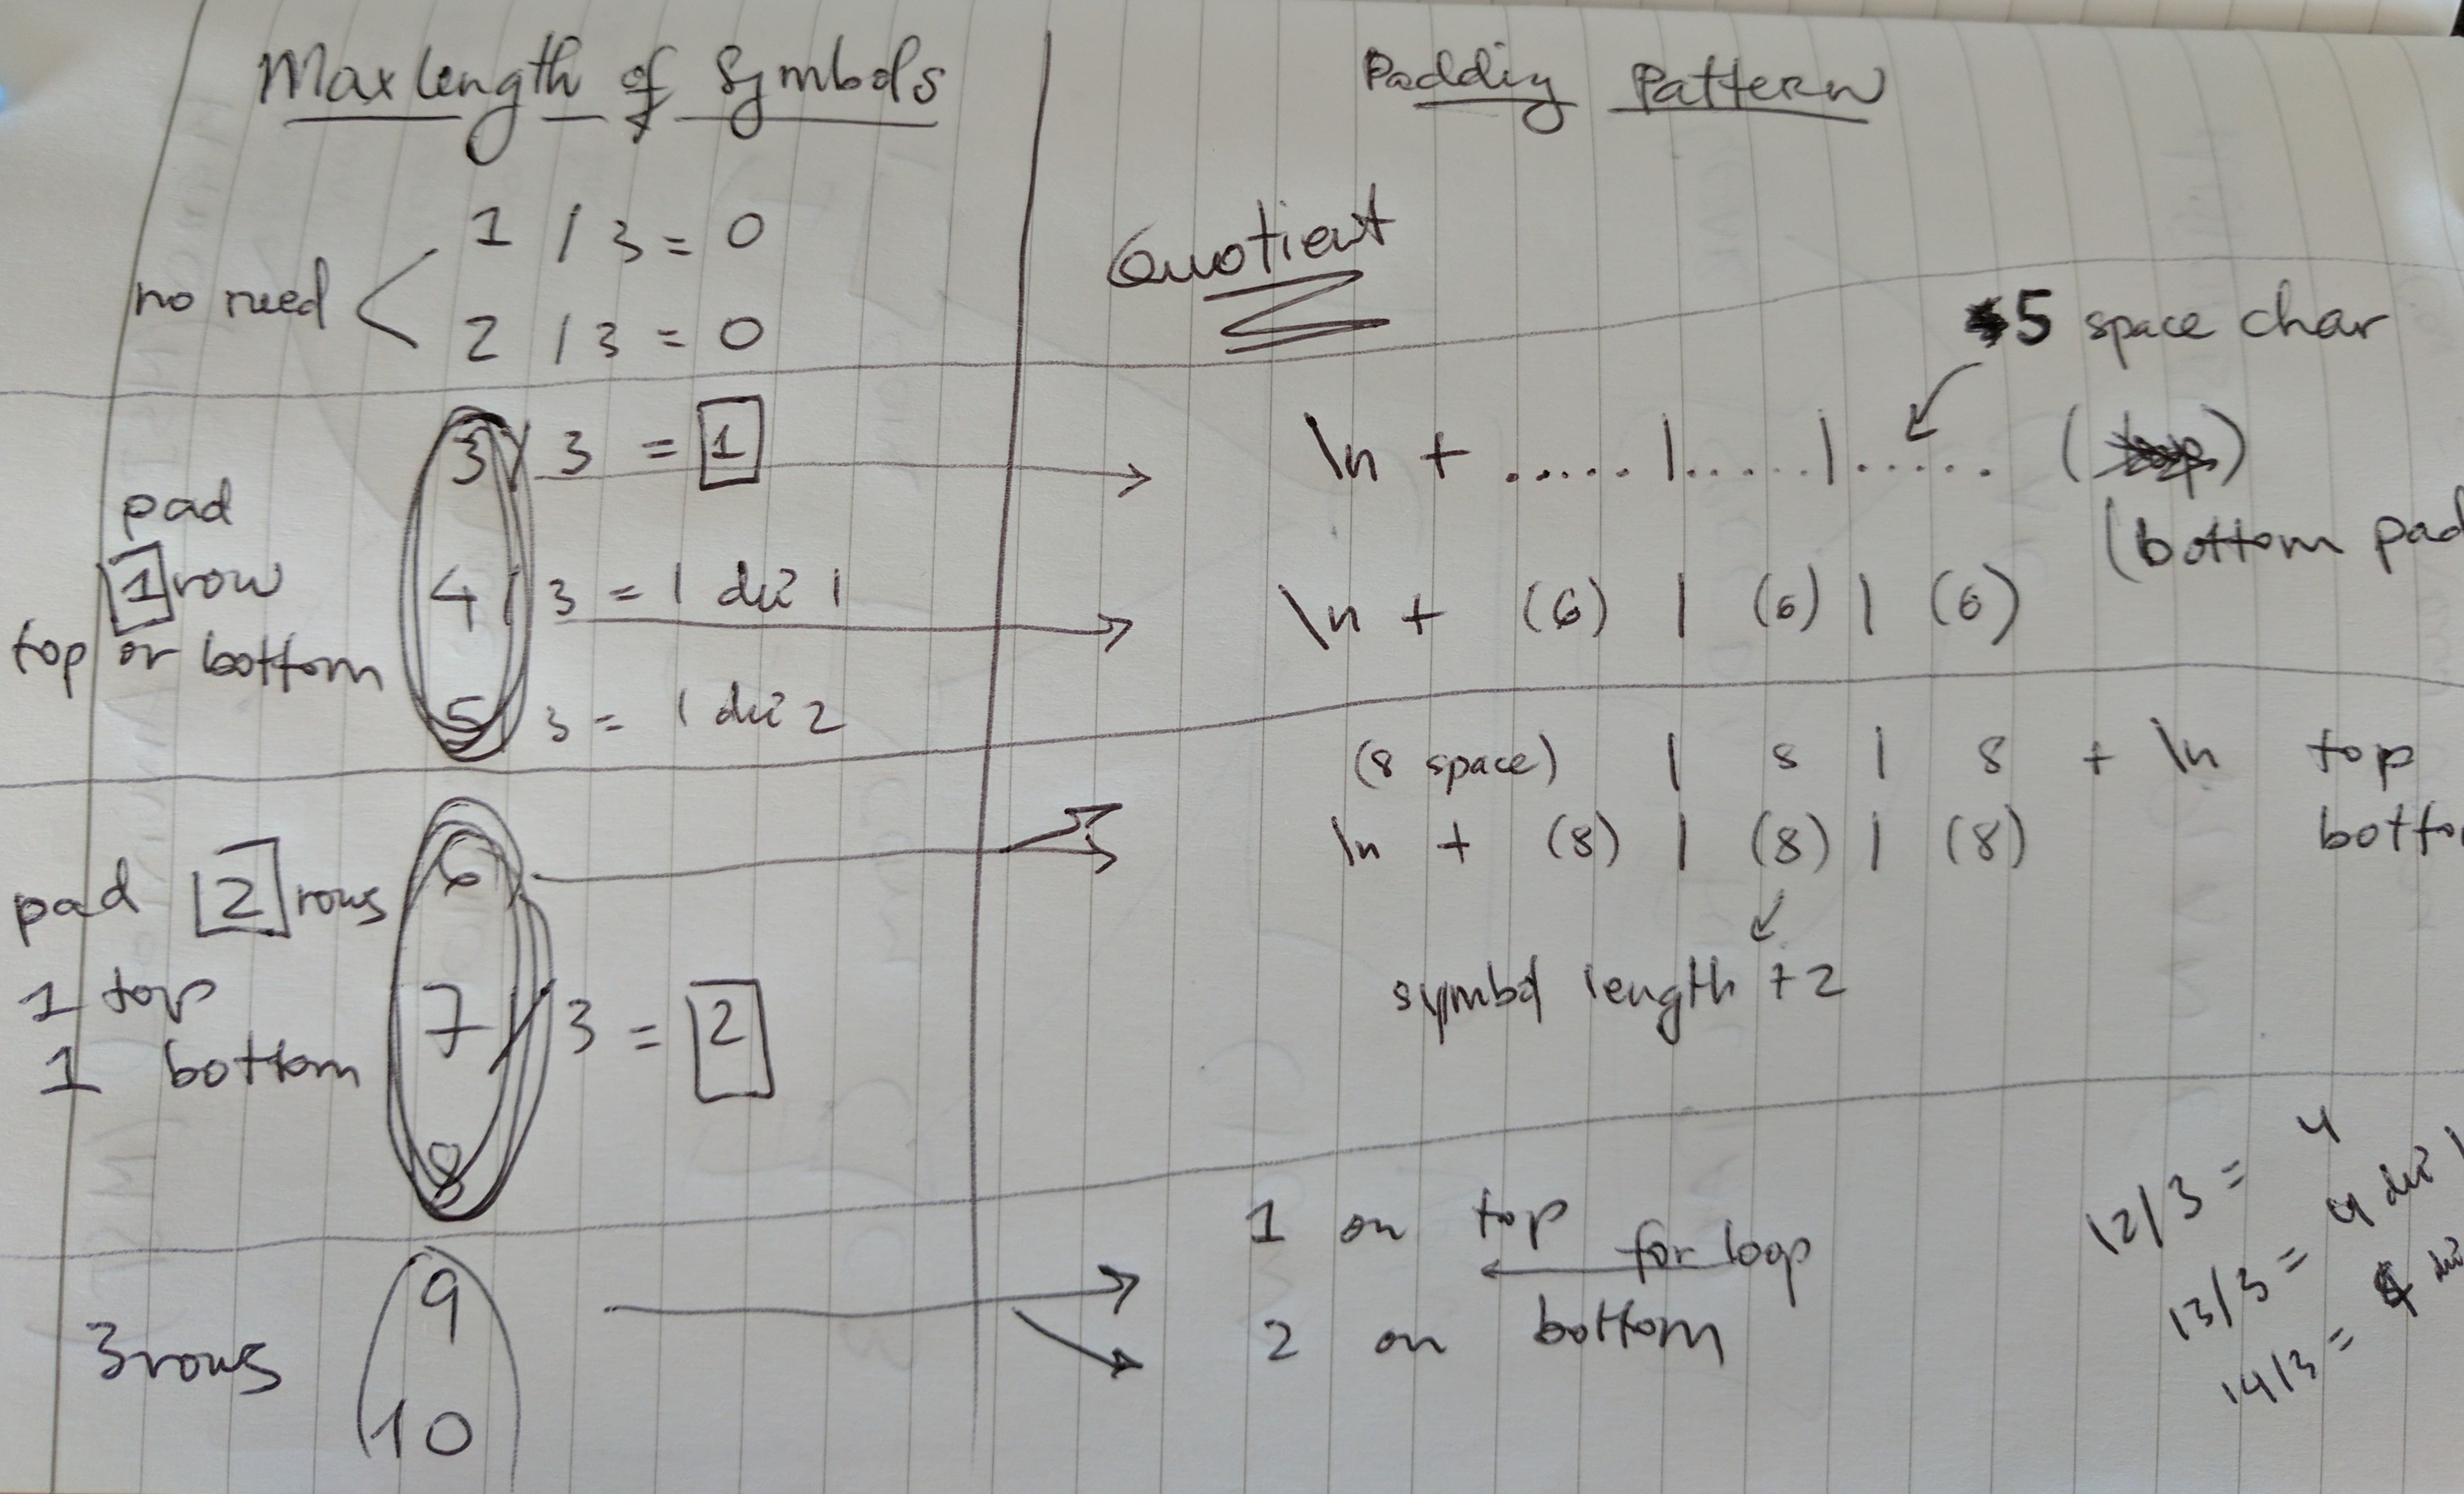 Max length of Symbols
1 / 3 = 0
no need
2 / 3 = 0
3 / 3 = 1
pad
1 row
top or bottom
4 / 3 = 1 dư 1
5 / 3 = 1 dư 2
pad 2 rows
1 top
1 bottom
6
7 / 3 = 2
8
3 rows
9
10
Paddig Pattern
Quotient
5 space char
\n + ..... | ..... | .....
(bottom pad
\n + (6) | (6) | (6)
(8 space) | 8 | 8 + \n top
\n + (8) | (8) | (8)
symbol length + 2
1 on top
for loop
2 on bottom
12/3 = 4
13/3 = 4 dư 1
14/3 = 4